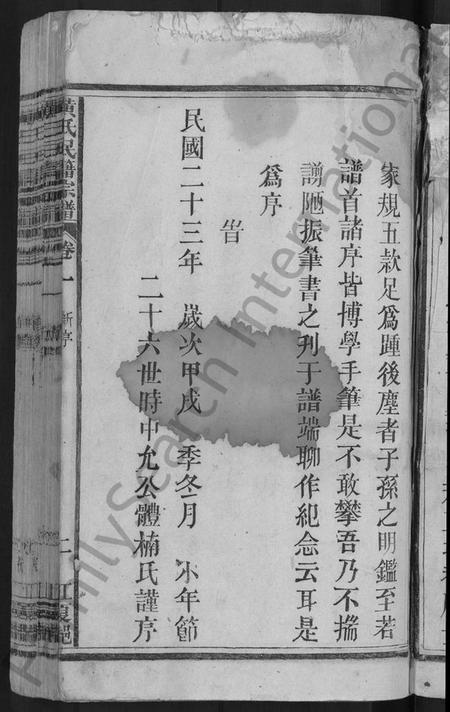 家規五款足為踵後塵者子孫之明鑑至若
譜首諸序皆博學手筆是不敢攀吾乃不揣
謭陋振筆書之刋于譜端聊作紀念云耳是
為序
旹
民國二十三年 歲次甲戌 季冬月 小年節
二十六世時中允公體楠氏謹序
黃氏民籍宗譜 卷一 新序 二 江夏
FamilySearch International